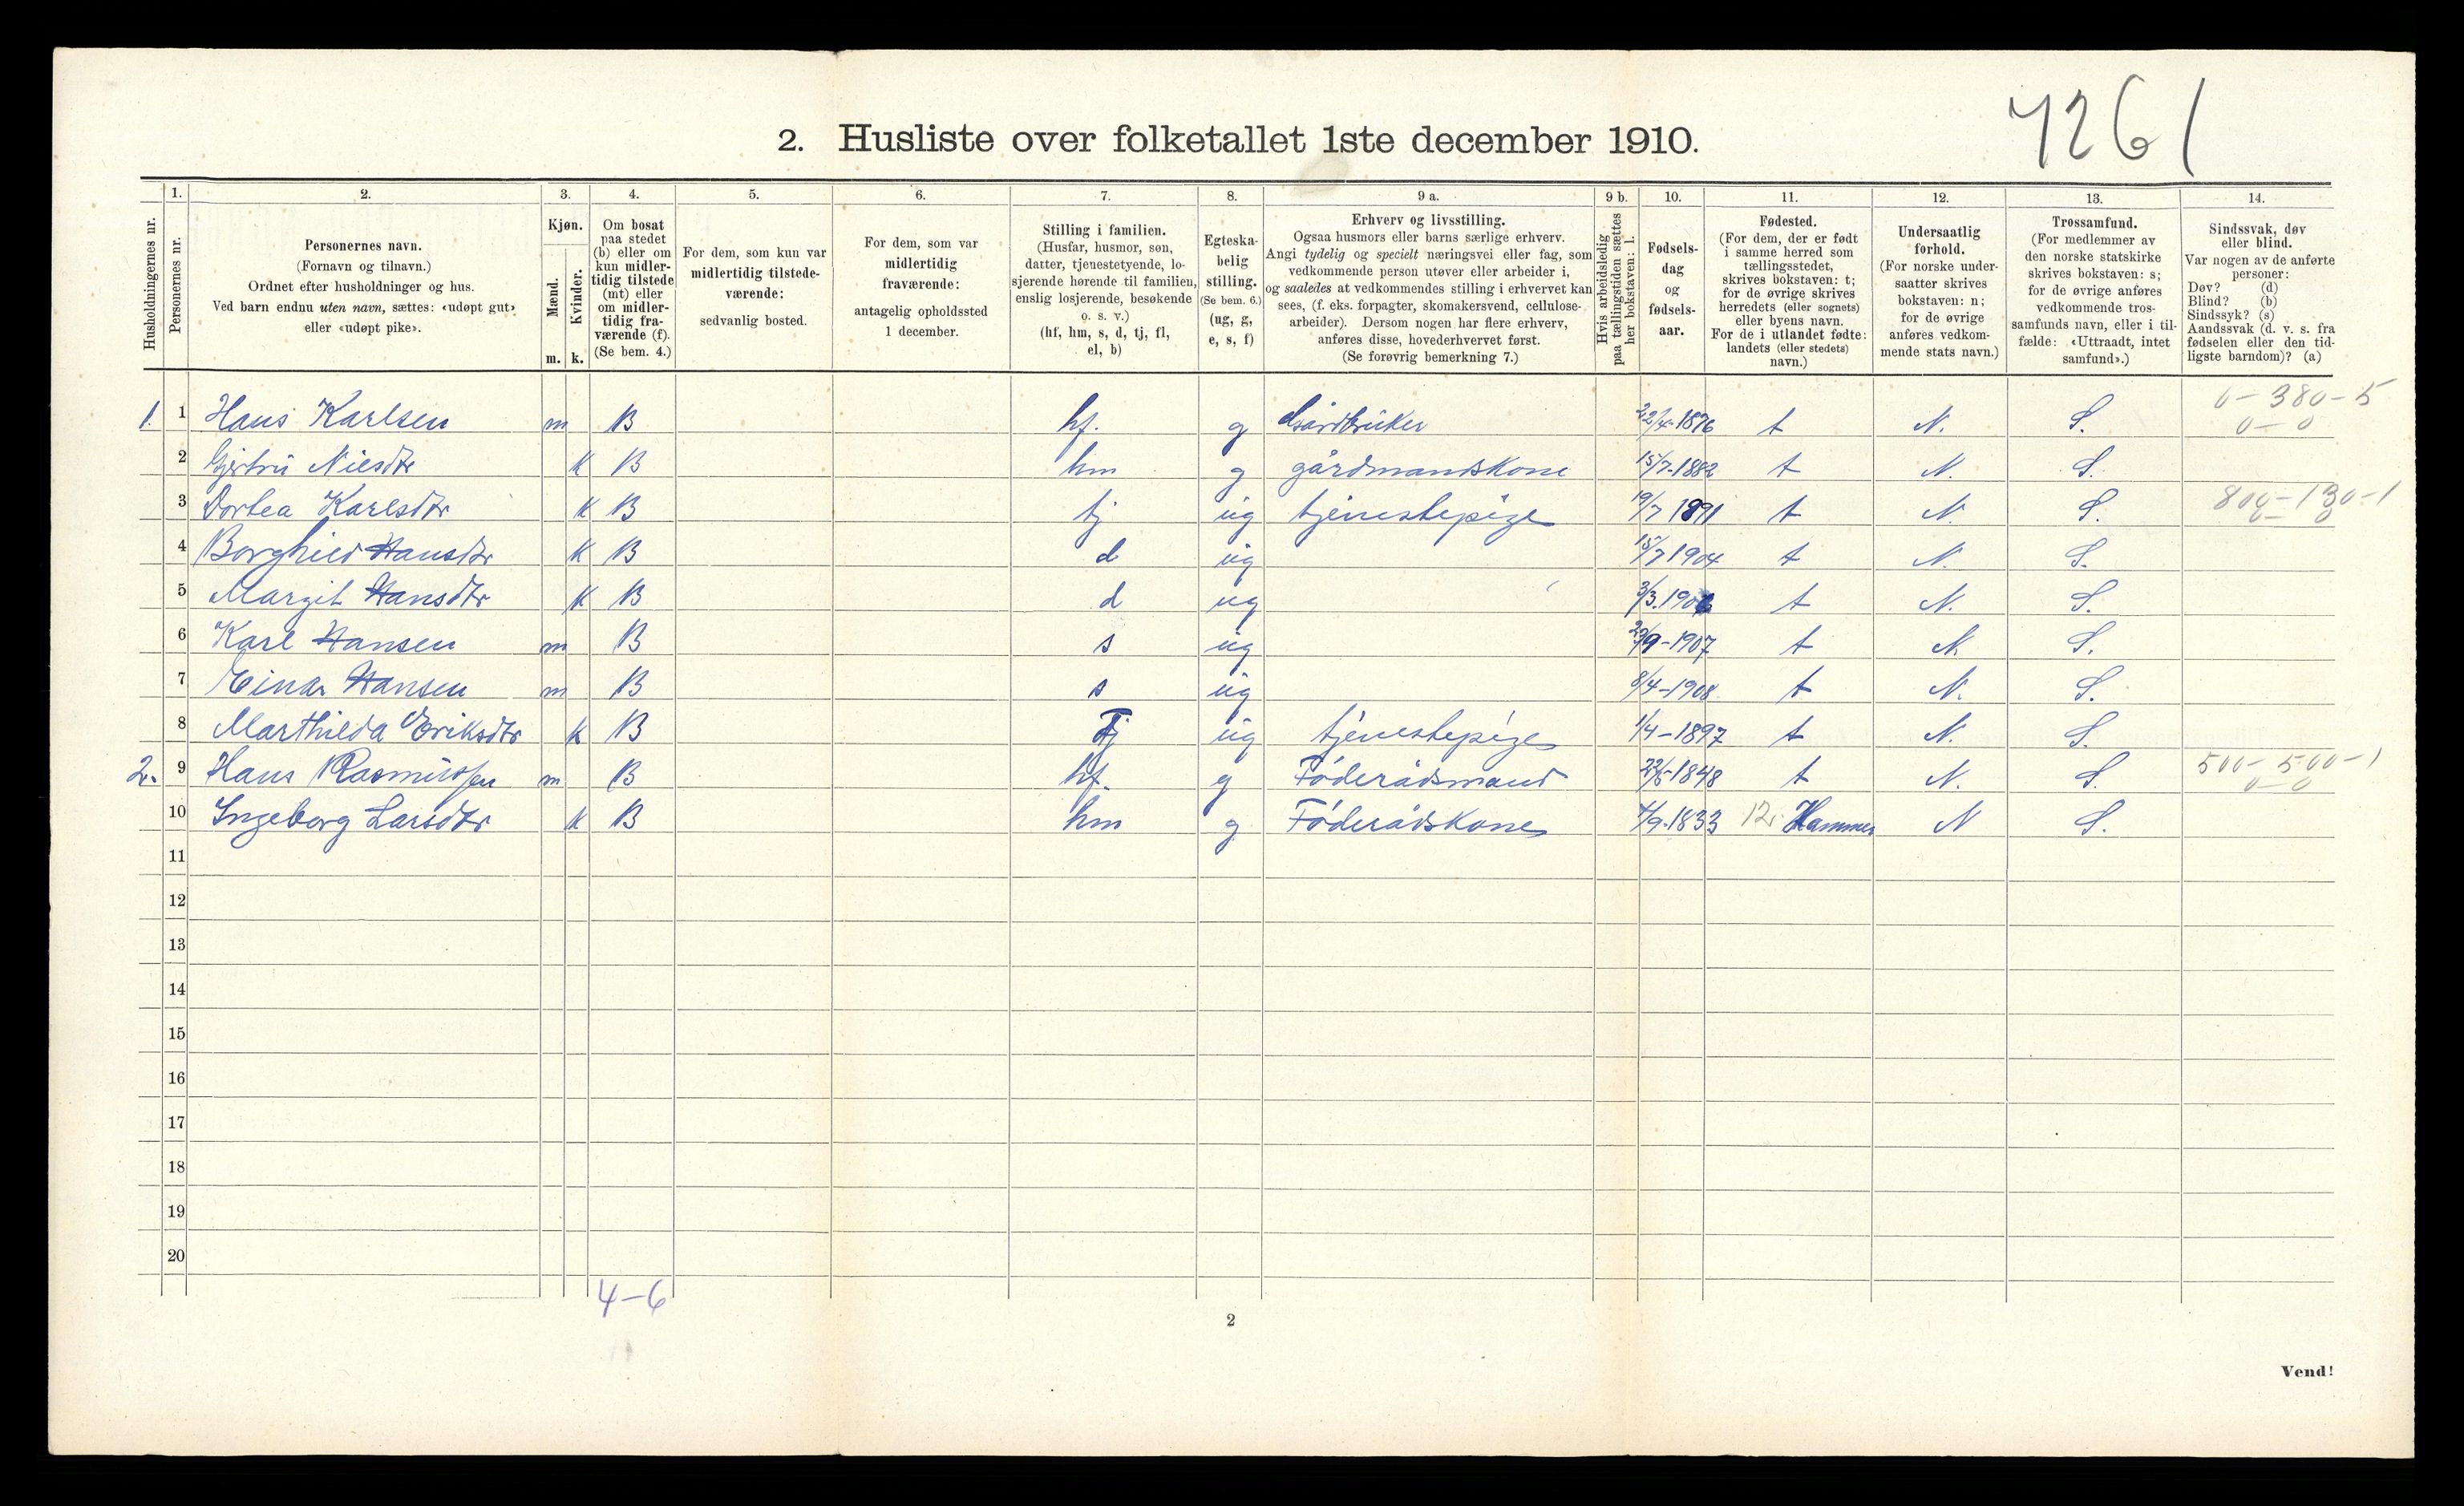 7261
2. Husliste over folketallet 1ste december 1910.
1. 2. 3. 4. 5. 6. 7. 8. 9 a. 9 b. 10. 11. 12. 13. 14.
Husholdningernes nr.
Personernes nr.
Personernes navn.
(Fornavn og tilnavn.)
Ordnet efter husholdninger og hus.
Ved barn endnu uten navn, sættes: «udøpt gut»
eller «udøpt pike».
Kjøn.
Mænd.
m.
Kvinder.
k.
Om bosat
paa stedet
(b) eller om
kun midler-
tidig tilstede
(mt) eller
om midler-
tidig fra-
værende (f).
(Se bem. 4.)
For dem, som kun var
midlertidig tilstede-
værende:
sedvanlig bosted.
For dem, som var
midlertidig
fraværende:
antagelig opholdssted
1 december.
Stilling i familien.
(Husfar, husmor, søn,
datter, tjenestetyende, lo-
sjerende hørende til familien,
enslig losjerende, besøkende
o. s. v.)
(hf, hm, s, d, tj, fl,
el, b)
Egteska-
belig
stilling.
(Se bem. 6.)
(ug, g,
e, s, f)
Erhverv og livsstilling.
Ogsaa husmors eller barns særlige erhverv.
Angi tydelig og specielt næringsvei eller fag, som
vedkommende person utøver eller arbeider i,
og saaledes at vedkommendes stilling i erhvervet kan
sees, (f. eks. forpagter, skomakersvend, cellulose-
arbeider). Dersom nogen har flere erhverv,
anføres disse, hovederhvervet først.
(Se forøvrig bemerkning 7.)
Hvis arbeidsledig
paa tællingstiden sættes
her bokstaven: l.
Fødsels-
dag
og
fødsels-
aar.
Fødested.
(For dem, der er født
i samme herred som
tællingsstedet,
skrives bokstaven: t;
for de øvrige skrives
herredets (eller sognets)
eller byens navn.
For de i utlandet fødte:
landets (eller stedets)
navn.)
Undersaatlig
forhold.
(For norske under-
saatter skrives
bokstaven: n;
for de øvrige
anføres vedkom-
mende stats navn.)
Trossamfund.
(For medlemmer av
den norske statskirke
skrives bokstaven: s;
for de øvrige anføres
vedkommende tros-
samfunds navn, eller i til-
fælde: «Uttraadt, intet
samfund».)
Sindssvak, døv
eller blind.
Var nogen av de anførte
personer:
Døv? (d)
Blind? (b)
Sindssyk? (s)
Aandssvak (d. v. s. fra
fødselen eller den tid-
ligste barndom)? (a)
1. 1 Hans Karlsen m B hf. g Gårdbruker 22/4-1876 t N. S. 0-380-5 0-0
2 Gjertru Nilsdtr K B hm g gårdmandskone 15/7-1882 t N. S.
3 Dortea Karlsdtr K B tj ug tjenestepige 19/7 1891 t N. S. 800-130-1 0-0
4 Borghild Hansdtr K B d ug 15/7 1904 t N. S.
5 Margit Hansdtr K B d ug 3/3. 1906 t N. S.
6 Karl Hansen m B s ug 29/9-1907 t N. S.
7 Einar Hansen m B s ug 8/4-1908. t N. S.
8 Marthilda Eriksdtr k B Tj ug tjenestepige 1/4-1897 t N. S.
2. 9 Hans Rasmussen m B hf. g Føderådsmand 22/6-1848 t N. S. 500-500-1 0-0
10 Ingeborg Larsdtr k B hm g Føderådskone 4/9-1833 12. Hammer N S.
11
12
13
14
15
16
17
18
19
20
4-6
2
Vend!